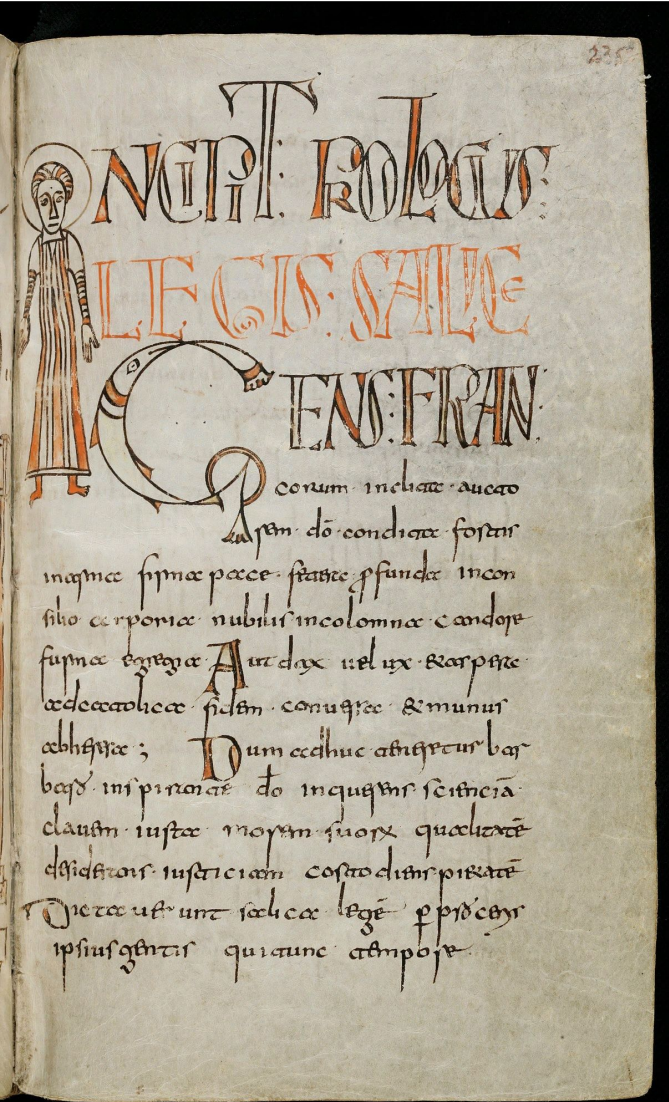 235
INCIPIT : PROLOGUS :
LEGIS : SALICE
GENS : FRAN :
corum · inclita · aucto
rem · dō · condita · fortis
in arma firma pace · fetere · ꝓfunda in con
silio corporia nubilis incolomna · candore
furma egregia · Audax uelux · & aspera
ad catolica · fidem · conuersa · & munus
ab heresa ; Dum adhuc teneretur bar
bar inspirante dō inquerens · scienciā ·
clauem · iusta morem · suorum qualitatē
desiderans · iusticiam costodiens pietatē
Dictauerunt salica legē ꝑ proceris
ipsius gentis qui tunc tempore